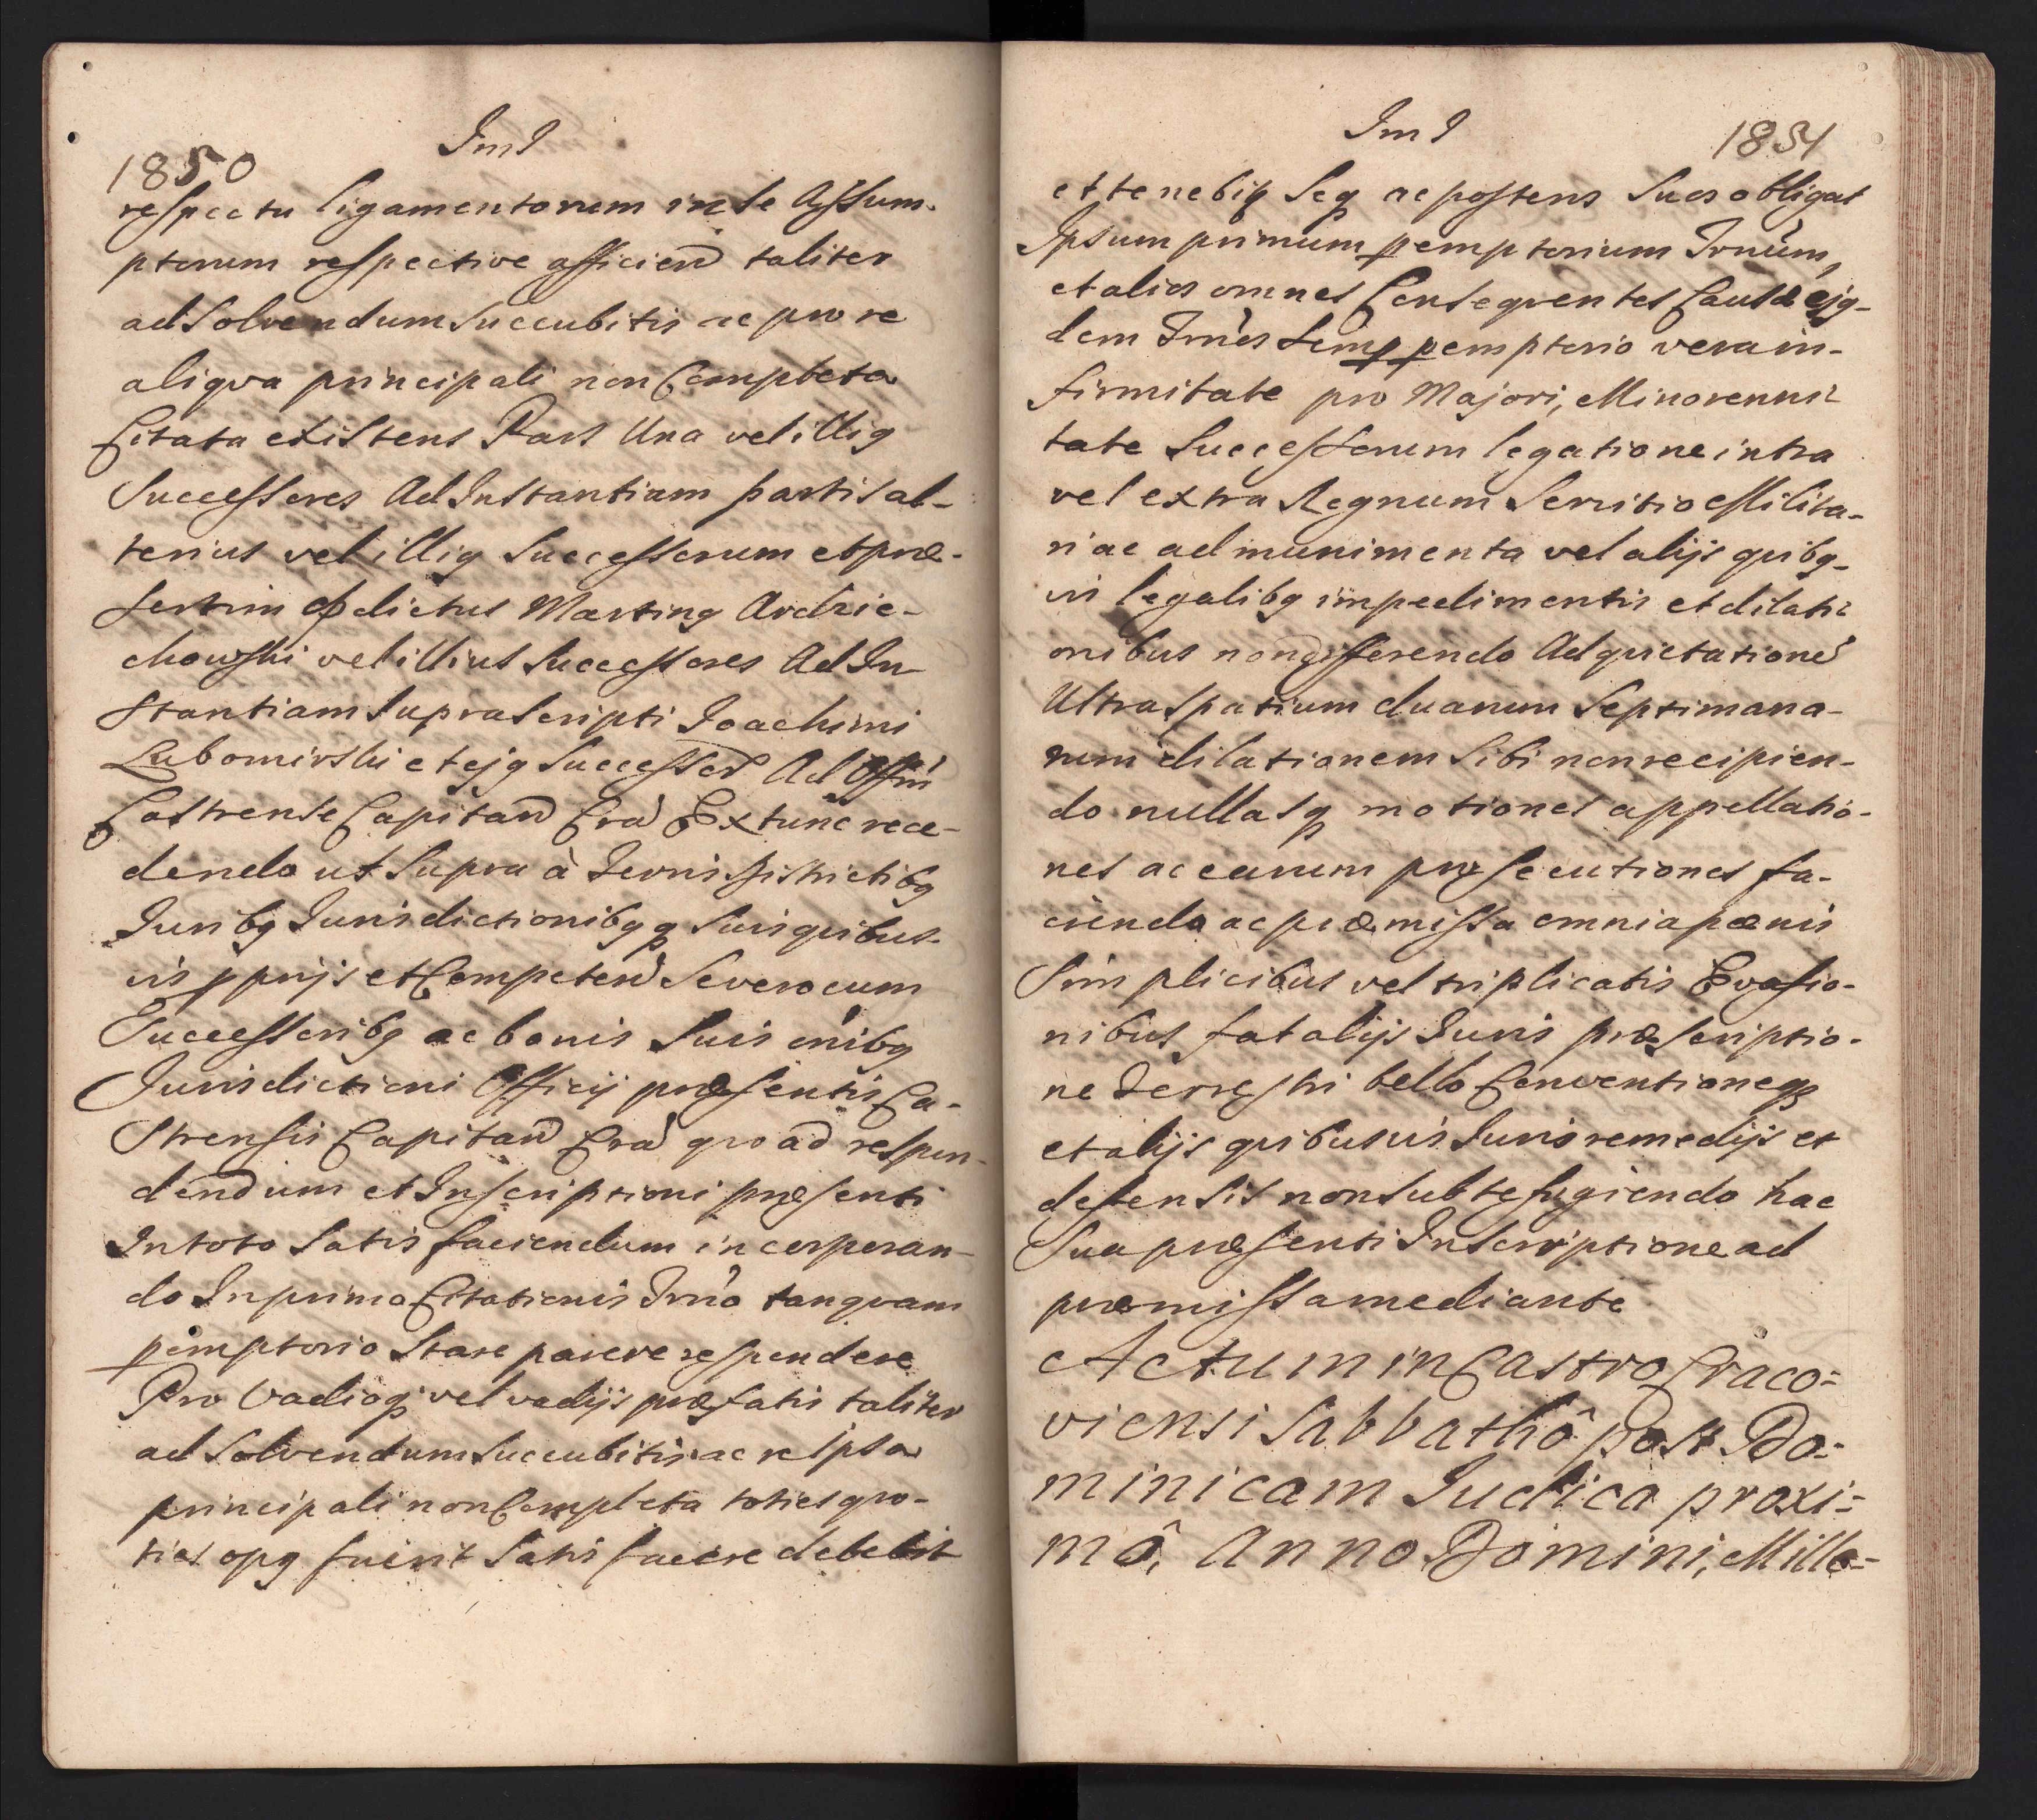 1850
JmJ
respectu ligamentorum in se Assum-
ptorum respective afficien taliter
ad Solvendum Succubitis ac pro re
aliqva principali non Completa
Citata existens Pars Una vel illiq
Successores Ad Instantiam partis al-
terius vel illiq Successorum et præ-
sertim dictus Martinq Ardzie-
chowski vel illius Successores Ad In
stantiam Supra Scripti Joachimi
Lubomirski et ejq Successor Ad Offm
Castrense Capitan Cra Ex tunc rece-
dendo ut Supra à Terris Districtibq
Juribq Jurisdictionibqq Suis qvibus-
vis pprijs et Competen Severo cum
Successoribq ac bonis Suis oñibq
Jurisdictioni Officij præsentis Ca-
Strensis Capitan Cra qvo ad respon-
dendum et Inscriptioni præsenti
In toto Satis faciendum incorporan-
do In primo Citationis Trno tanqvam
pemptorio Stare parere respondere
Pro Vadioq vel vadijs præfatis taliter
ad Solvendum Succubitis ac re Ipsa
principali non Completa toties qvo-
ties opq fuerit Satis facere debebit
JmJ
1851
et tenebiq Seq ac posteros Suos obligat
Ipsum primum pemptorium Trnum,
et alios omnes Conseqventes Causæ ejq-
dem Trnos Semp pemptorio vera in-
firmitate pro Majori, Minorenni-
tate Successorum legatione intra
vel extra Regnum Servitio Milita-
ri ac ad munimenta vel alijs qvibq-
vis legalibq impedimentis et dilati-
onibus non differendo Ad qvietatione
Ultra Spatium duarum Septimana-
rum dilationem Sibi non recipien-
do nullasq motiones appellatio-
nes ac earum prosecutiones fa-
ciendo ac præmissa omnia pænis
Simplicibus vel triplicatis Evasio-
nibus fatalijs Juris præscriptio-
ne Terrestri bello Conventioneq
et alijs qvibusvis Juris remedijs et
defensis non Subterfugiendo hac
Sua præsenti Inscriptione ad
præmissa mediante
Actum in Castro Craco-
viensi Sabbathô post Do-
minicam Judica proxi-
mâ, Anno Domini, Mille-